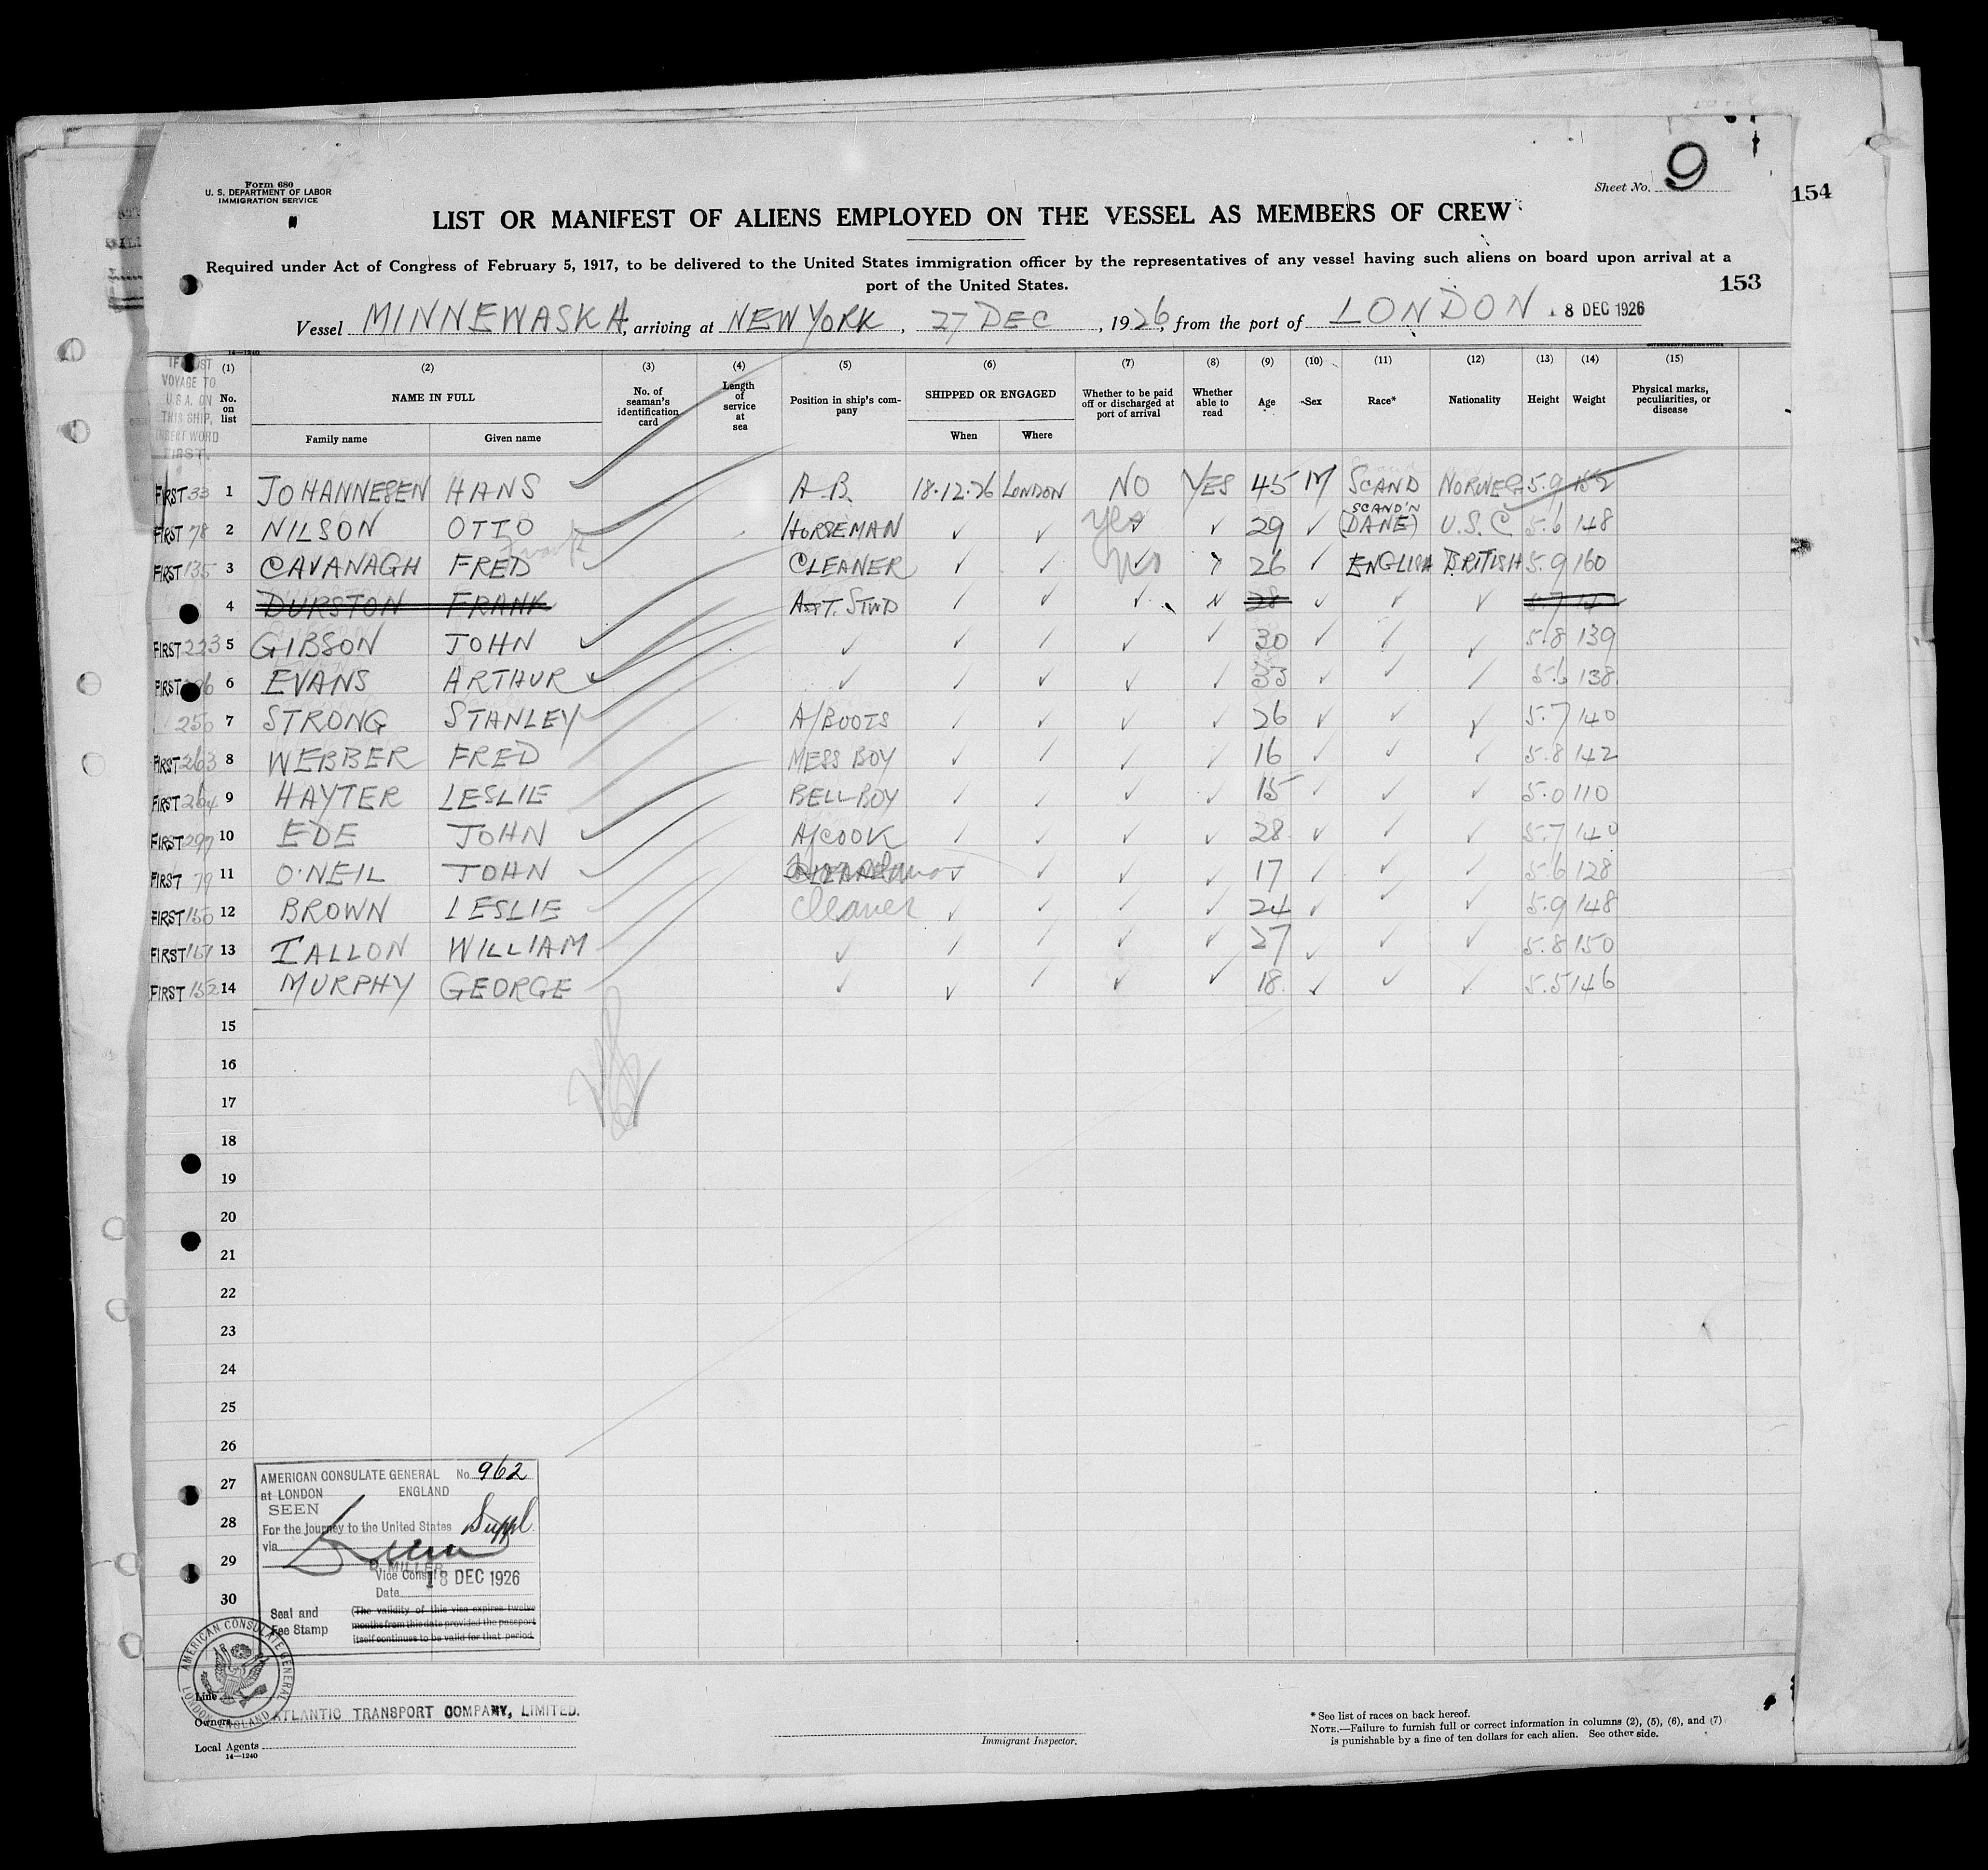 Form 680
U. S. DEPARTMENT OF LABOR
IMMIGRATION SERVICE
Sheet No. 9
154
LIST OR MANIFEST OF ALIENS EMPLOYED ON THE VESSEL AS MEMBERS OF CREW
Required under Act of Congress of February 5, 1917, to be delivered to the United States immigration officer by the representatives of any vessel having such aliens on board upon arrival at a
port of the United States.
153
Vessel MINNEWASKA, arriving at NEW YORK, 27 DEC, 1926, from the port of LONDON 8 DEC 1926
14—1240
VOYAGE TO U.S.A. ON THIS SHIP, INSERT WORD FIRST.
(1) (2) (3) (4) (5) (6) (7) (8) (9) (10) (11) (12) (13) (14) (15)
No. on list NAME IN FULL No. of seaman's identification card Length of service at sea Position in ship's company SHIPPED OR ENGAGED Whether to be paid off or discharged at port of arrival Whether able to read Age Sex Race* Nationality Height Weight Physical marks, peculiarities, or disease
Family name Given name When Where
FIRST 33 1 JOHANNESEN HANS A.B. 18.12.26 LONDON NO YES 45 M SCAND NORWEG 5.9 152
FIRST 78 2 NILSON OTTO HORSEMAN ✓ ✓ yes ✓ ✓ 29 ✓ SCAND'N (DANE) U.S.C 5.6 148
FIRST 135 3 CAVANAGH FRED Frank CLEANER ✓ ✓ No ✓ ✓ 26 ✓ ENGLISH BRITISH 5.9 160
4 DURSTON FRANK ASST. STWD ✓ ✓ ✓ ✓ 28 ✓ ✓ ✓ 5.7
FIRST 223 5 GIBSON JOHN ✓ ✓ ✓ ✓ ✓ 30 ✓ ✓ ✓ 5.8 139
FIRST 6 EVANS ARTHUR ✓ ✓ ✓ ✓ ✓ 33 ✓ ✓ ✓ 5.6 138
250 7 STRONG STANLEY A/BOOTS ✓ ✓ ✓ ✓ 26 ✓ ✓ ✓ 5.7 140
FIRST 263 8 WEBBER FRED MESS BOY ✓ ✓ ✓ ✓ 16 ✓ ✓ ✓ 5.8 142
FIRST 264 9 HAYTER LESLIE BELL-BOY ✓ ✓ ✓ ✓ 15 ✓ ✓ ✓ 5.0 110
FIRST 297 10 EDE JOHN A/COOK ✓ ✓ ✓ ✓ 28 ✓ ✓ ✓ 5.7 140
FIRST 79 11 O'NEIL JOHN ✓ ✓ ✓ ✓ 17 ✓ ✓ ✓ 5.6 128
FIRST 150 12 BROWN LESLIE Cleaner ✓ ✓ ✓ ✓ 24 ✓ ✓ ✓ 5.9 148
FIRST 151 13 TALLON WILLIAM ✓ ✓ ✓ ✓ ✓ 27 ✓ ✓ ✓ 5.8 150
FIRST 152 14 MURPHY GEORGE ✓ ✓ ✓ ✓ ✓ 18 ✓ ✓ ✓ 5.5 146
15
16
17
18
19
20
21
22
23
24
25
26
27
28
29
30
AMERICAN CONSULATE GENERAL No. 962
at LONDON ENGLAND
SEEN
For the journey to the United States Suppl.
via
MILLER
Vice Consul
Date 18 DEC 1926
Seal and Fee Stamp
(The validity of this visa expires twelve
months from this date provided the passport
itself continues to be valid for that period.
AMERICAN CONSULATE GENERAL LONDON ENGLAND
Line
Owners ATLANTIC TRANSPORT COMPANY, LIMITED.
Local Agents
14—1240
Immigrant Inspector.
* See list of races on back hereof.
NOTE.—Failure to furnish full or correct information in columns (2), (5), (6), and (7)
is punishable by a fine of ten dollars for each alien. See other side.